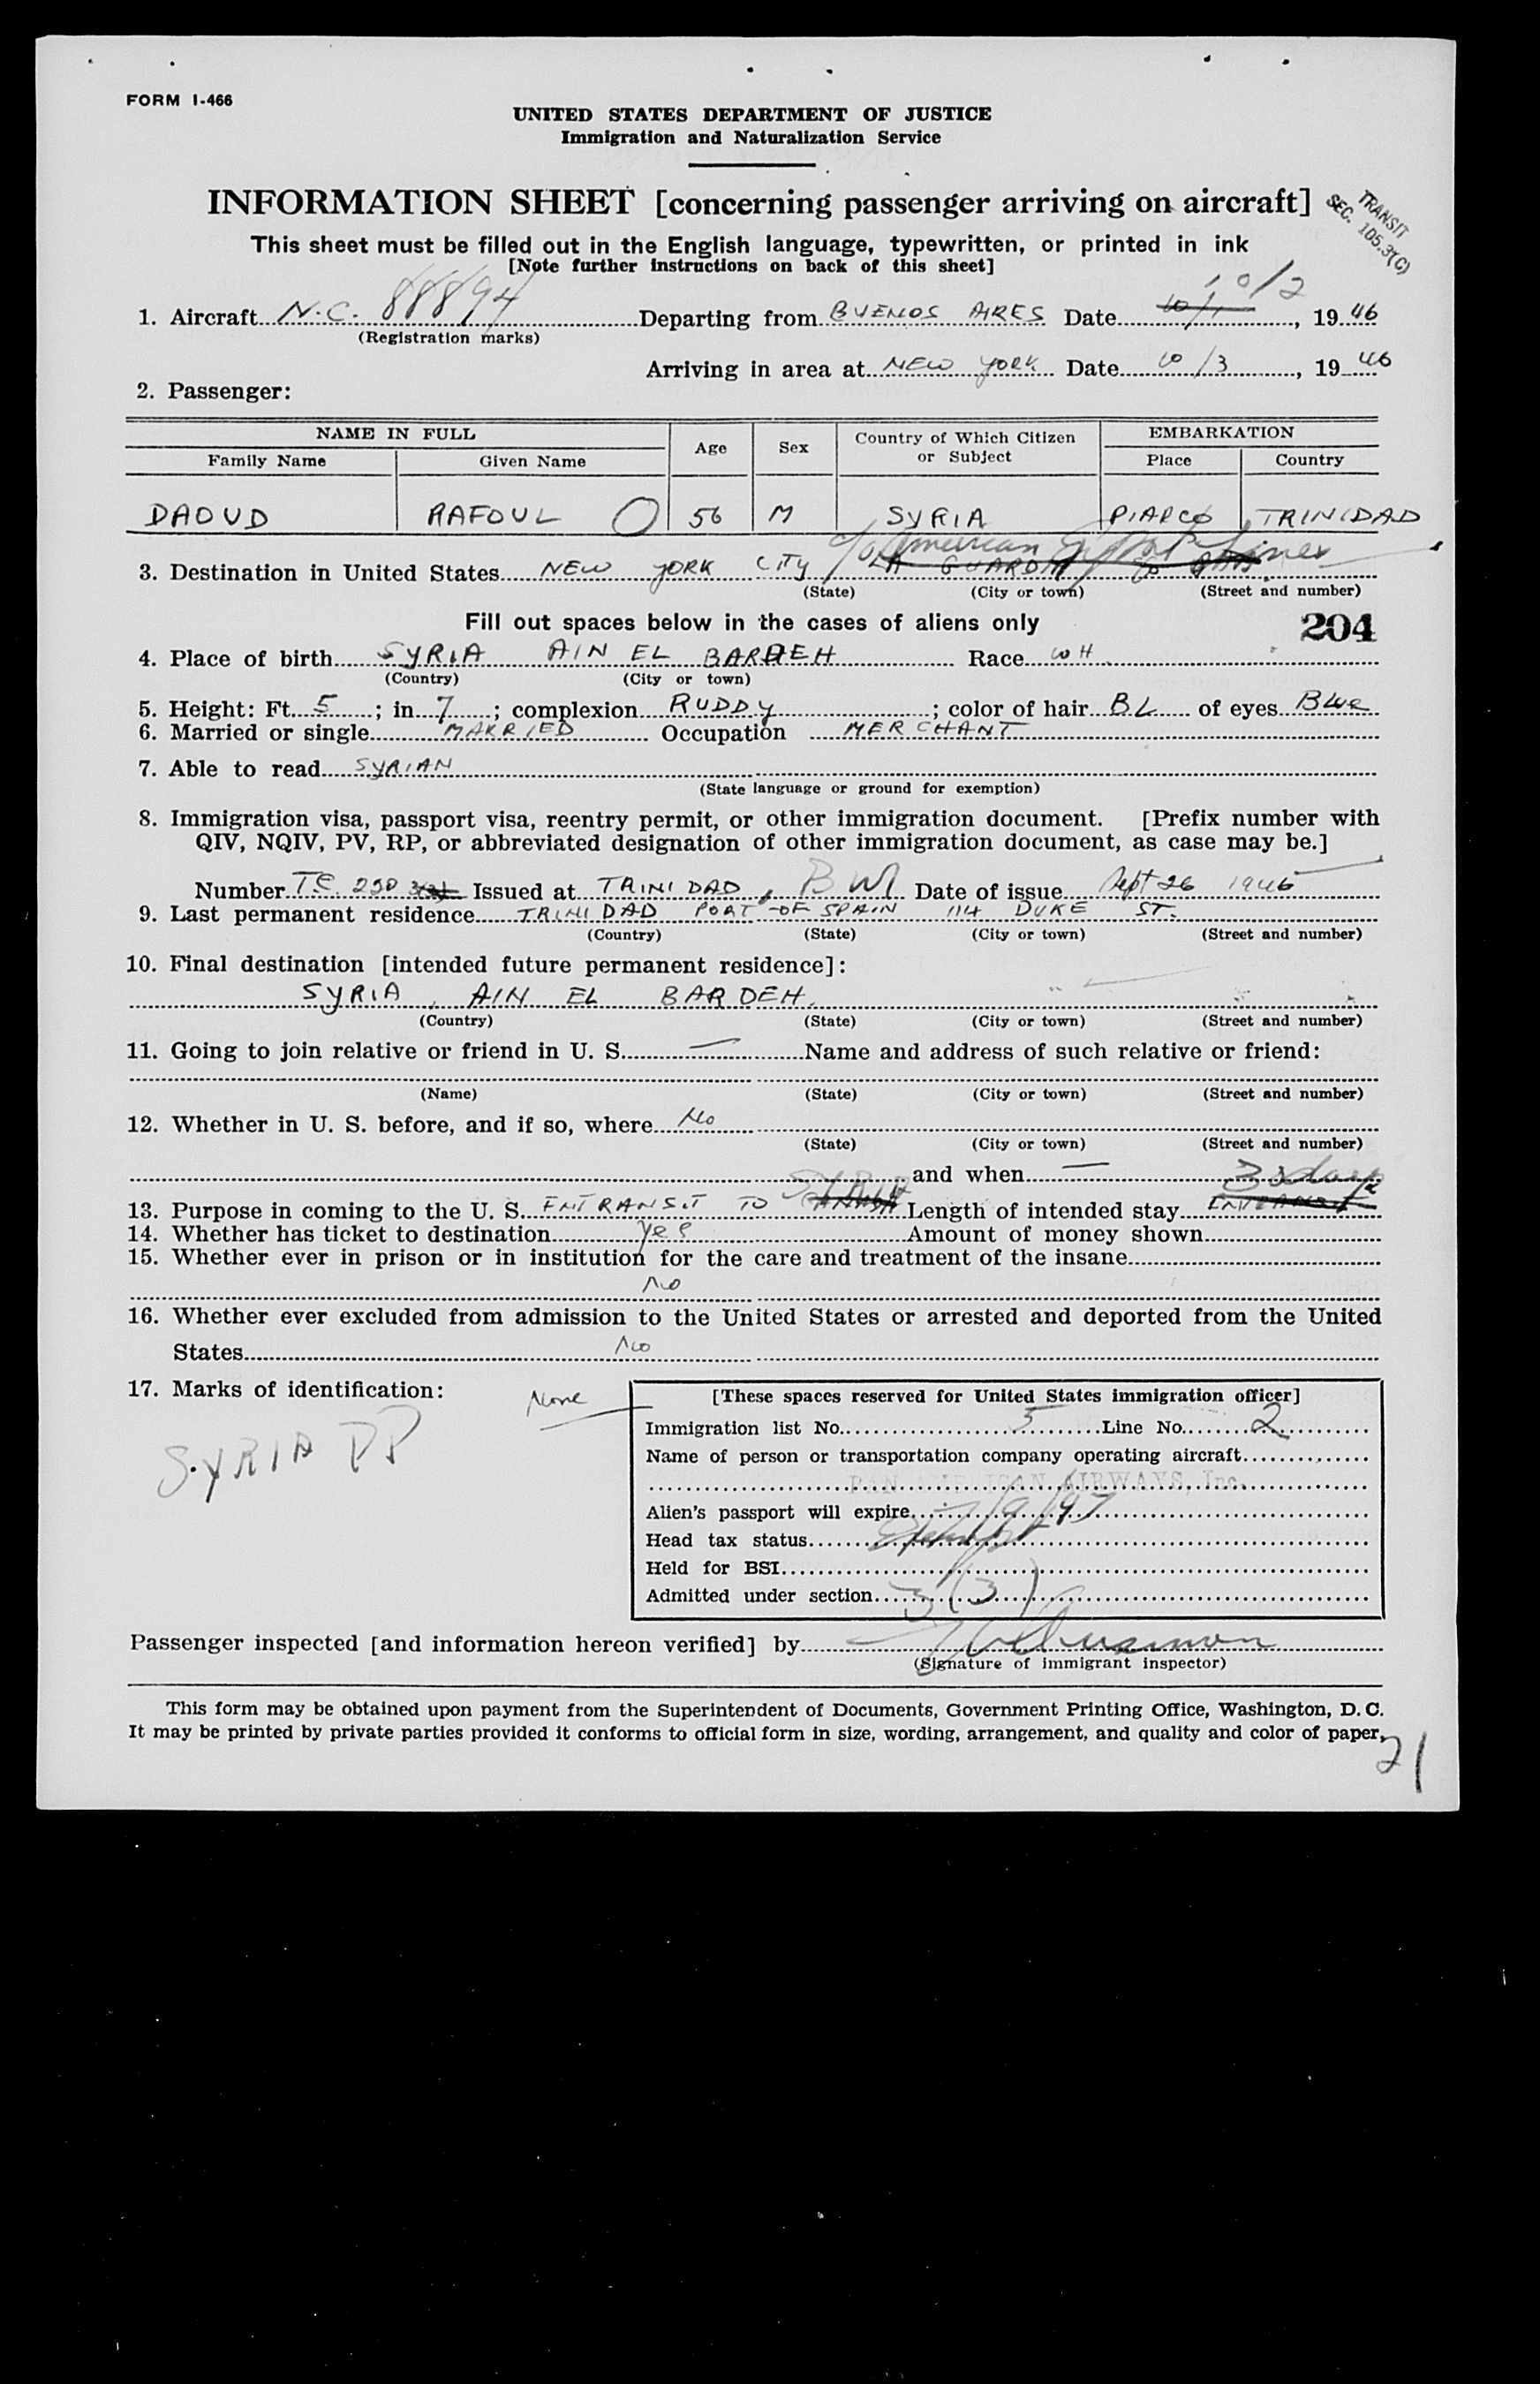 FORM I-466
UNITED STATES DEPARTMENT OF JUSTICE
Immigration and Naturalization Service
INFORMATION SHEET [concerning passenger arriving on aircraft]
TRANSIT
SEC. 105.3(C)
This sheet must be filled out in the English language, typewritten, or printed in ink
[Note further instructions on back of this sheet]
10/2
1. Aircraft N.C. 88894 Departing from BUENOS AIRES Date 10/1, 1946
(Registration marks)
Arriving in area at NEW YORK Date 10/3, 1946
2. Passenger:
NAME IN FULL Age Sex Country of Which Citizen or Subject EMBARKATION
Family Name Given Name Place Country
DAOUD RAFOUL O 56 M SYRIA PIARCO TRINIDAD
c/o American Export Lines
3. Destination in United States NEW YORK CITY LA GUARDIA
(State) (City or town) (Street and number)
Fill out spaces below in the cases of aliens only 204
4. Place of birth SYRIA AIN EL BARDEH Race WH
(Country) (City or town)
5. Height: Ft. 5; in. 7; complexion RUDDY; color of hair BL of eyes BLUE
6. Married or single MARRIED Occupation MERCHANT
7. Able to read SYRIAN
(State language or ground for exemption)
8. Immigration visa, passport visa, reentry permit, or other immigration document. [Prefix number with
QIV, NQIV, PV, RP, or abbreviated designation of other immigration document, as case may be.]
Number T.C. 230 Issued at TRINIDAD, BWI Date of issue Sept 26 1946
9. Last permanent residence TRINIDAD PORT-OF SPAIN 114 DUKE ST.
(Country) (State) (City or town) (Street and number)
10. Final destination [intended future permanent residence]:
SYRIA, AIN EL BARDEH.
(Country) (State) (City or town) (Street and number)
11. Going to join relative or friend in U. S. — Name and address of such relative or friend:
(Name) (State) (City or town) (Street and number)
12. Whether in U. S. before, and if so, where No
(State) (City or town) (Street and number)
and when —
13. Purpose in coming to the U. S. ENTRANSIT TO SYRIA Length of intended stay days
14. Whether has ticket to destination yes Amount of money shown
15. Whether ever in prison or in institution for the care and treatment of the insane
No
16. Whether ever excluded from admission to the United States or arrested and deported from the United
States No
17. Marks of identification: None
SYRIA PP
[These spaces reserved for United States immigration officer]
Immigration list No. 5 Line No. 2
Name of person or transportation company operating aircraft
PAN AMERICAN AIRWAYS, Inc.
Alien's passport will expire 7/9/47
Head tax status
Held for BSI
Admitted under section 3(3)
Passenger inspected [and information hereon verified] by
(Signature of immigrant inspector)
This form may be obtained upon payment from the Superintendent of Documents, Government Printing Office, Washington, D. C.
It may be printed by private parties provided it conforms to official form in size, wording, arrangement, and quality and color of paper.
21